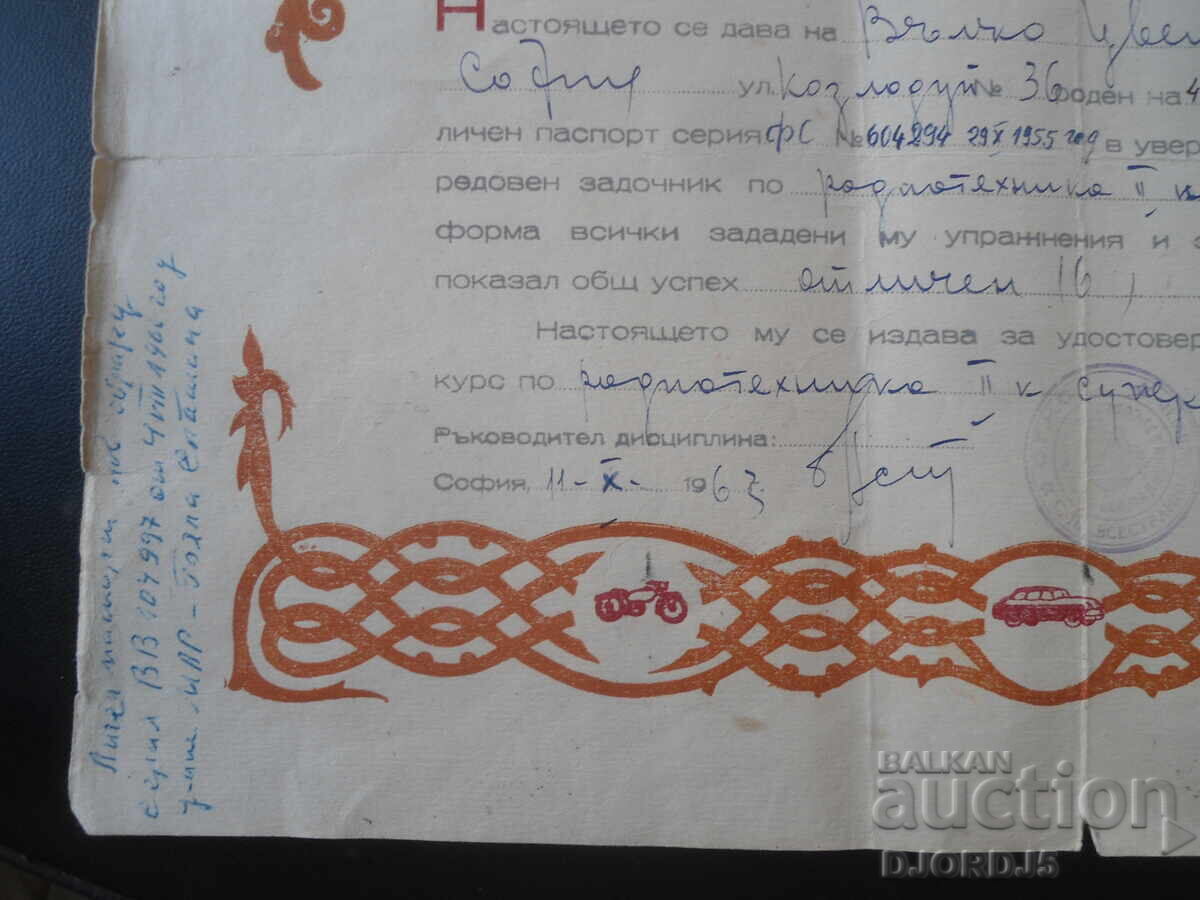 Настоящето се дава на Вълчо Цвет
София ул. Козлодуй № 36 роден на 4
личен паспорт серия ФС № 604294 29 X 1955 год в увер
редовен задочник по радиотехника II к
форма всички зададени му упражнения и з
показал общ успех отличен /6/
Настоящето му се издава за удостовер
курс по радиотехника II к супер
Ръководител дисциплина:
София, 11-X- 1963
Личен паспорт нов образец
серия ВВ 104997 от 4 VIII 196 год
у-ние МВР - Голяма
BALKAN
auction
DJORDJ5